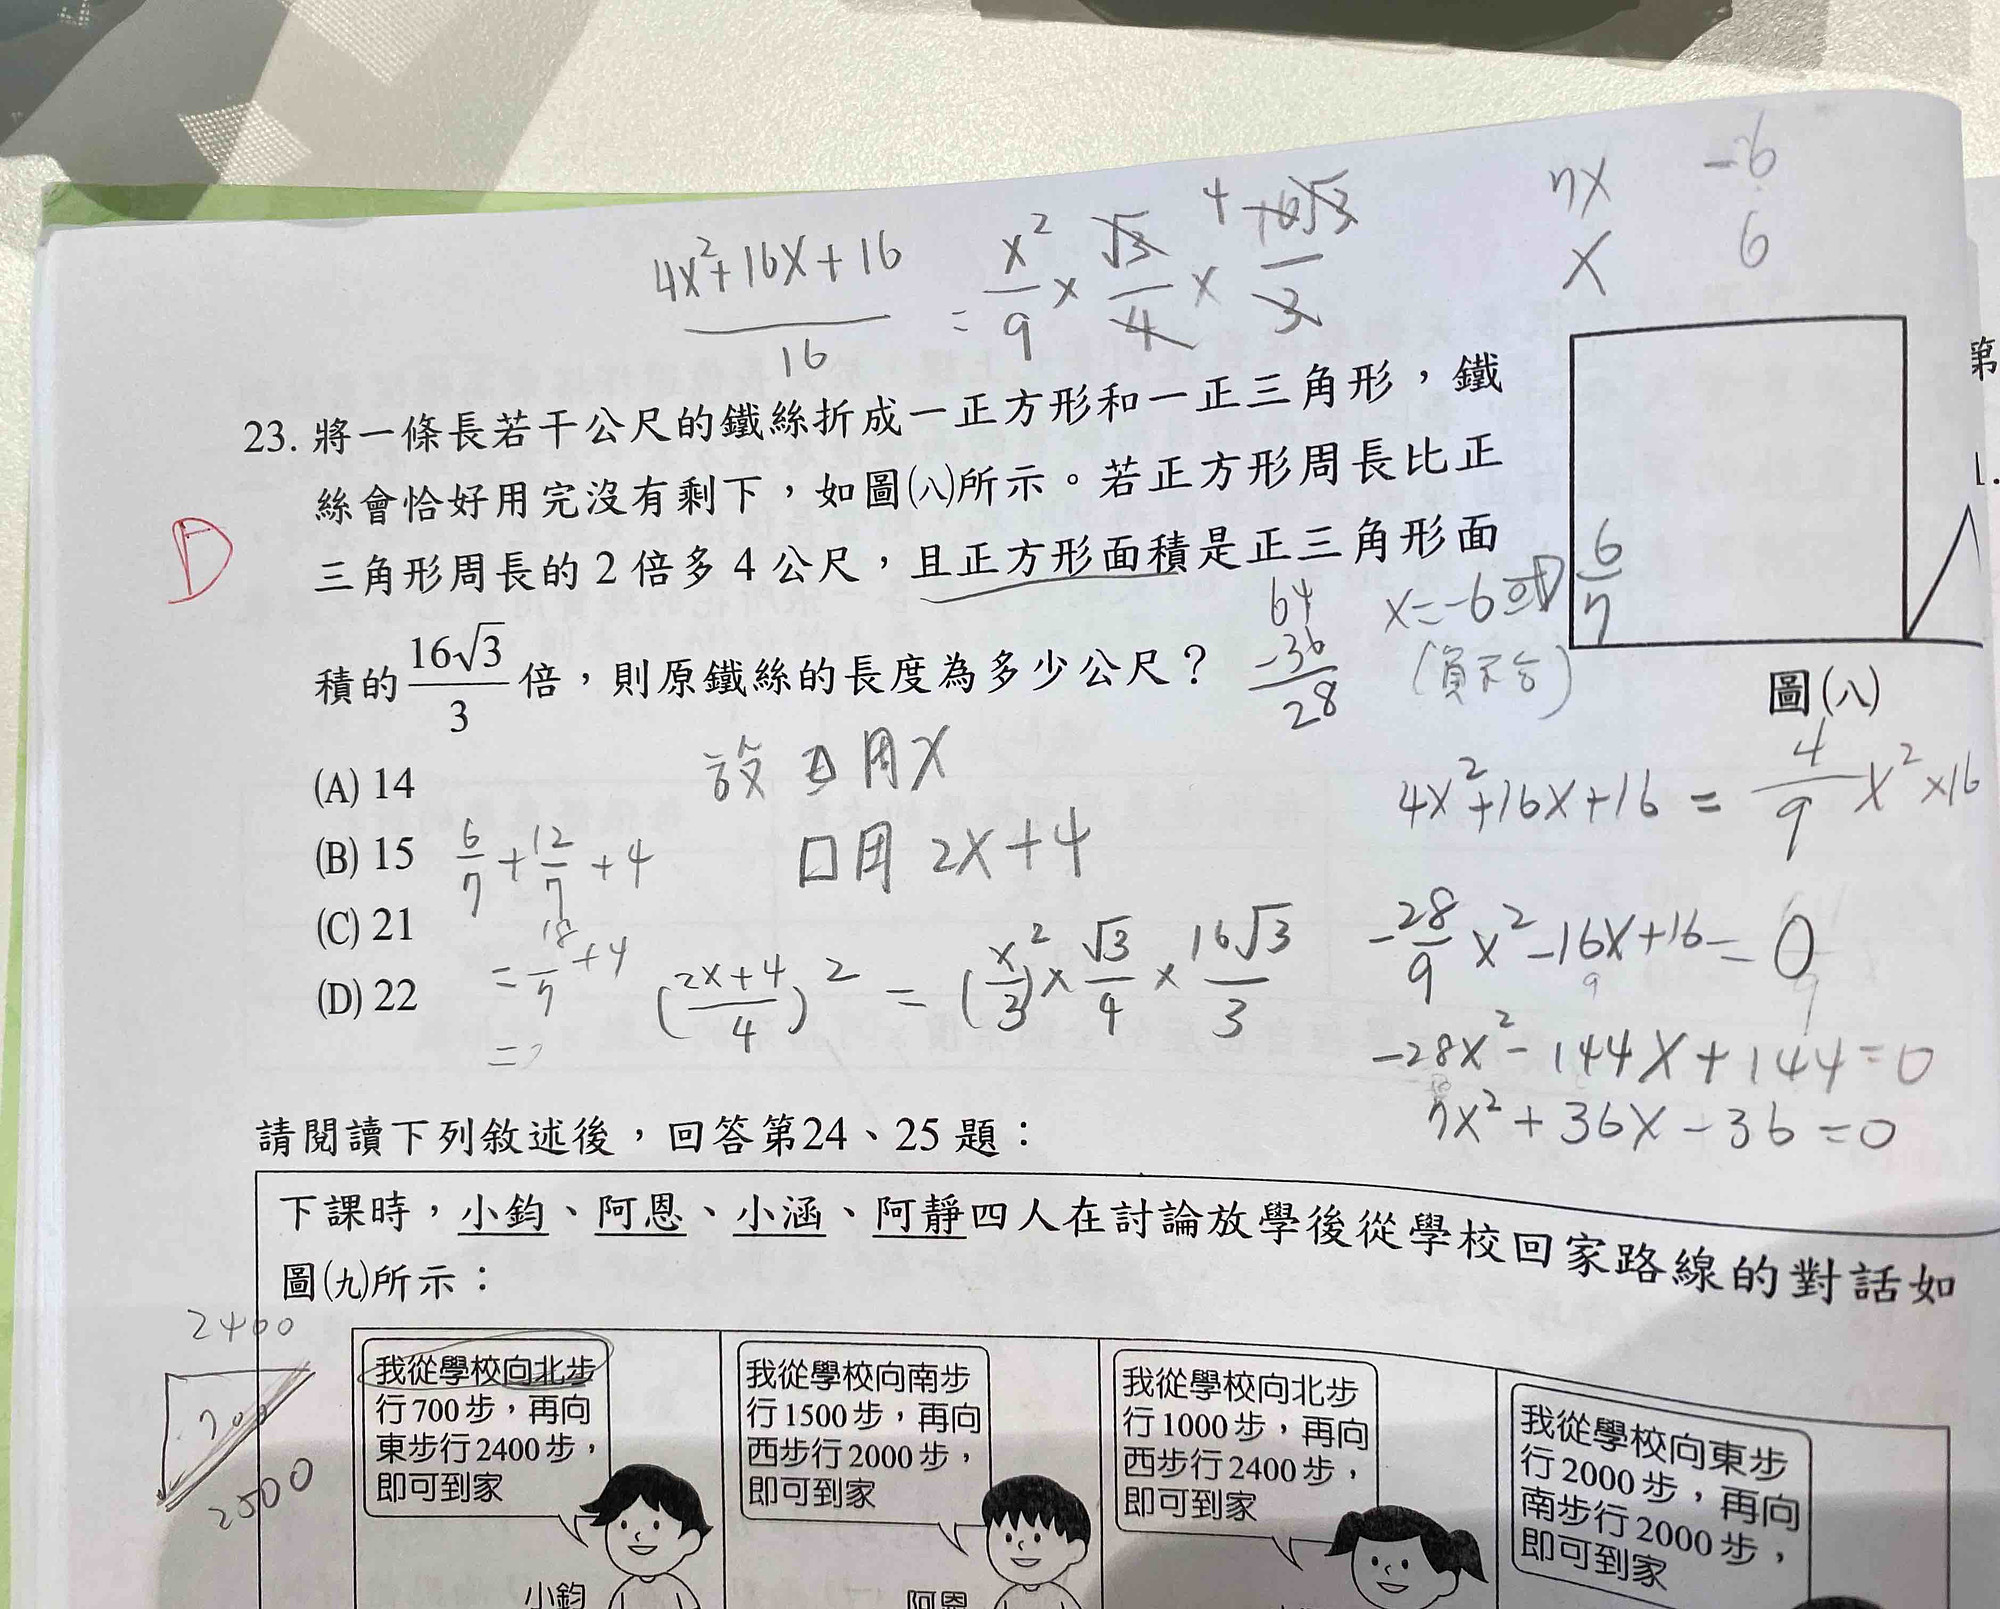 4x²+16x+16
16
= x²/9 × √3/4 × 16√3/3
4
7x -6
x 6
23. 將一條長若干公尺的鐵絲折成一正方形和一正三角形，鐵
絲會恰好用完沒有剩下，如圖(八)所示。若正方形周長比正
三角形周長的 2 倍多 4 公尺，且正方形面積是正三角形面
積的 16√3/3 倍，則原鐵絲的長度為多少公尺？
D
64
-36
28
x=-6或 6/7
(負不合)
圖(八)
第
1.
(A) 14
(B) 15
(C) 21
(D) 22
設 △周x
□周 2x+4
6/7 + 12/7 + 4
= 18/7 + 4
=
((2x+4)/4)² = (x/3)² × √3/4 × 16√3/3
4x²+16x+16 = 4/9 x² ×16
-28/9 x² -16x+16 = 0
-28x² - 144x + 144 = 0
7x² + 36x - 36 = 0
請閱讀下列敘述後，回答第24、25 題：
下課時，小鈞、阿恩、小涵、阿靜四人在討論放學後從學校回家路線的對話如
圖(九)所示：
2400
700
2500
我從學校向北步
行 700 步，再向
東步行 2400 步，
即可到家
小鈞
我從學校向南步
行 1500 步，再向
西步行 2000 步，
即可到家
阿恩
我從學校向北步
行 1000 步，再向
西步行 2400 步，
即可到家
我從學校向東步
行 2000 步，再向
南步行 2000 步，
即可到家